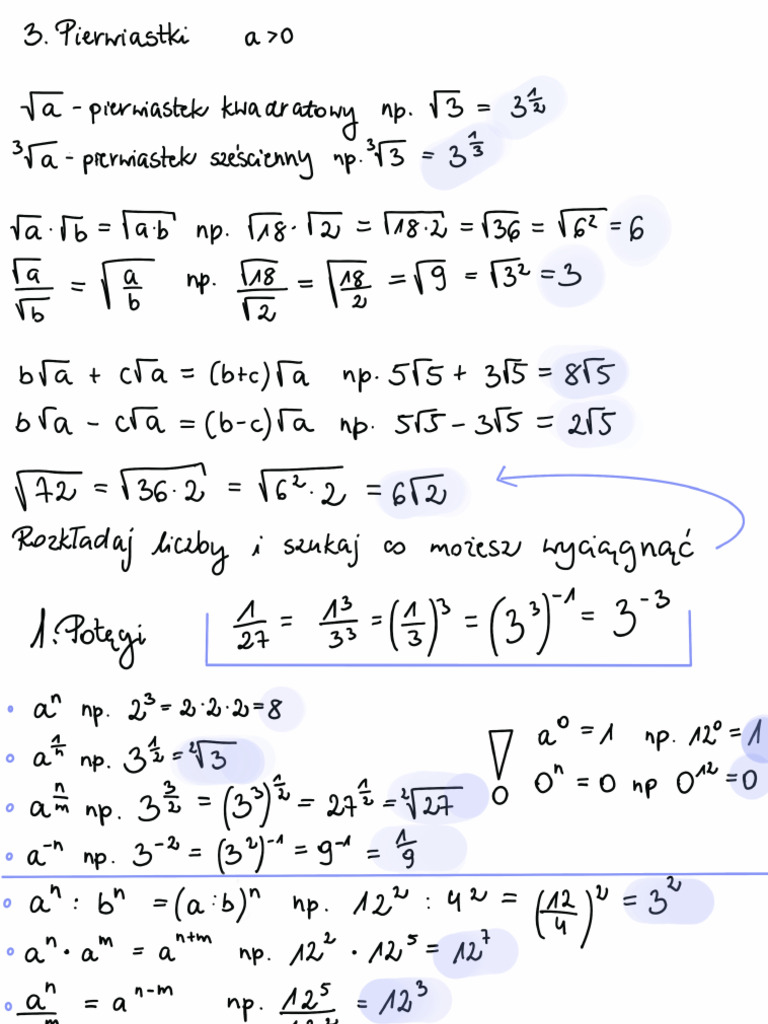 3. Pierwiastki a>0
√a - pierwiastek kwadratowy np. √3 = 3^(1/2)
³√a - pierwiastek sześcienny np. ³√3 = 3^(1/3)
√a · √b = √(a·b) np. √18 · √2 = √(18·2) = √36 = √(6²) = 6
√a/√b = √(a/b) np. √18/√2 = √(18/2) = √9 = √(3²) = 3
b√a + c√a = (b+c)√a np. 5√5 + 3√5 = 8√5
b√a - c√a = (b-c)√a np. 5√5 - 3√5 = 2√5
√72 = √(36·2) = √(6²·2) = 6√2
Rozkładaj liczby i szukaj co możesz wyciągnąć
1. Potęgi 1/27 = 1³/3³ = (1/3)³ = (3³)⁻¹ = 3⁻³
• aⁿ np. 2³ = 2·2·2 = 8
• a^(1/n) np. 3^(1/2) = ²√3
• a^(n/m) np. 3^(3/2) = (3³)^(1/2) = 27^(1/2) = ²√27
• a⁻ⁿ np. 3⁻² = (3²)⁻¹ = 9⁻¹ = 1/9
! a⁰ = 1 np. 12⁰ = 1
0ⁿ = 0 np 0¹² = 0
• aⁿ : bⁿ = (a:b)ⁿ np. 12² : 4² = (12/4)² = 3²
• aⁿ · aᵐ = aⁿ⁺ᵐ np. 12² · 12⁵ = 12⁷
• aⁿ/aᵐ = aⁿ⁻ᵐ np. 12⁵/12² = 12³